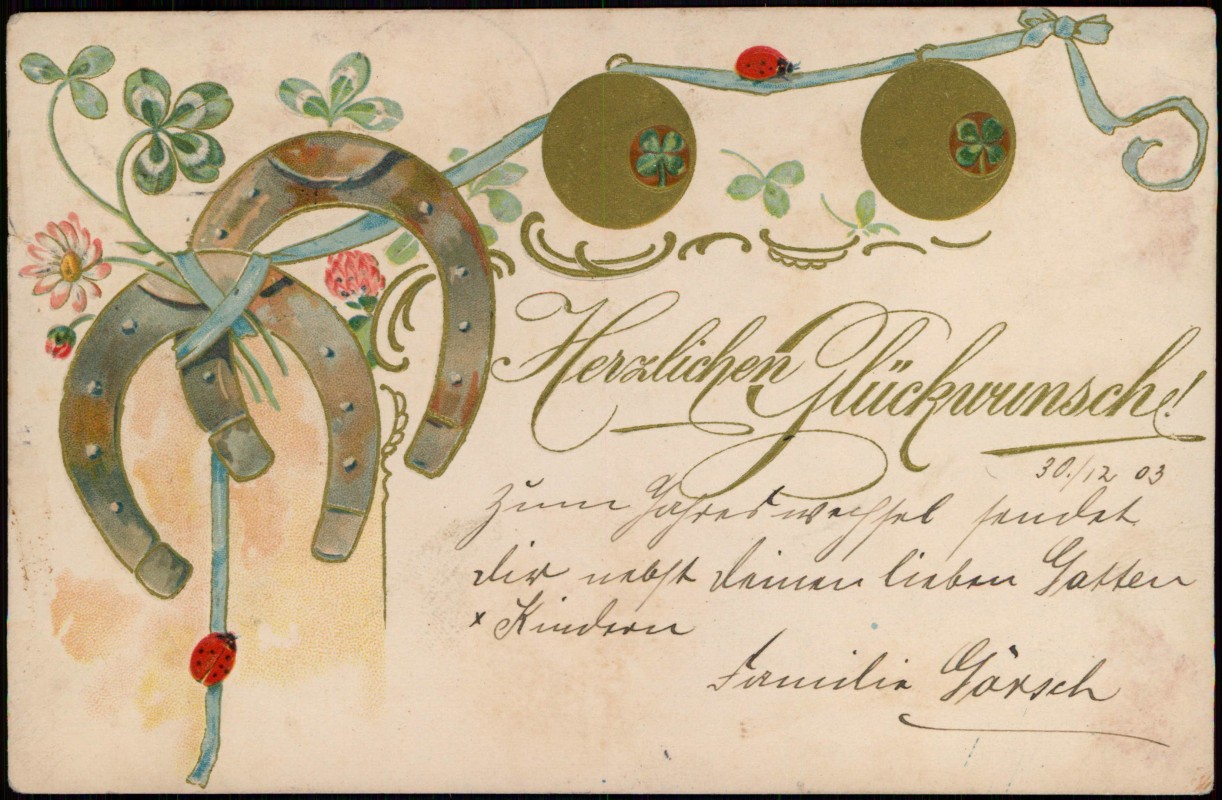 Herzlichen Glückwunsch!
30./12 03
Zum Jahreswechsel sendet
dir nebst deinen lieben Gatten
x Kindern
Familie Görsch